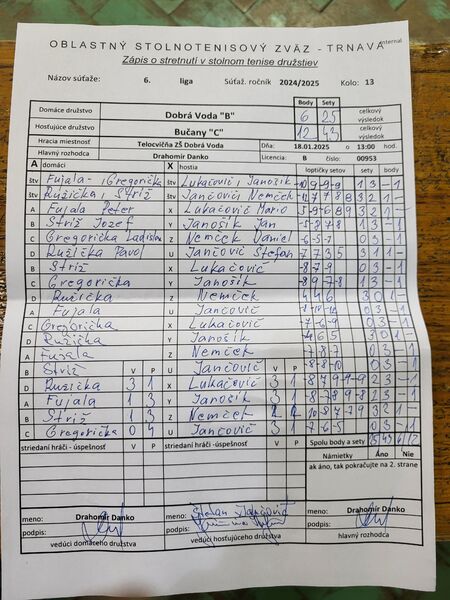 OBLASTNÝ STOLNOTENISOVÝ ZVÄZ - TRNAVA
Internal
Zápis o stretnutí v stolnom tenise družstiev
Názov súťaže: 6. liga Súťaž. ročník 2024/2025 Kolo: 13
Body Sety
Domáce družstvo Dobrá Voda "B" 6 25 celkový výsledok
Hosťujúce družstvo Bučany "C" 12 43 celkový výsledok
Hracia miestnosť Telocvičňa ZŠ Dobrá Voda Dňa 18.01.2025 o 13:00 hod.
Hlavný rozhodca Drahomír Danko Licencia: B číslo: 00953
A domáci X hostia loptičky setov sety body
štv Fujala - Gregorička štv Lukačovič, Janošík 1 3 - 1
štv Ružička, Stríž štv Jančovič Nemček 3 2 1 -
A Fujala Peter X Lukačovič Mario 3 2 1 -
B Stríž Jozef Y Janošík Ján -5 -8 7 8 1 3 - 1
C Gregorička Ladislav Z Nemček Daniel -6 -5 -7 0 3 - 1
D Ružička Pavol U Jančovič Štefan 7 7 3 5 3 1 1 -
B Stríž X Lukačovič -8 -7 -9 0 3 - 1
C Gregorička Y Janošík 1 3 - 1
D Ružička Z Nemček 4 4 6 3 0 1 -
A Fujala U Jančovič 0 3 - 1
C Gregorička X Lukačovič -7 -6 -9 0 3 - 1
D Ružička Y Janošík 4 6 5 3 0 1 -
A Fujala Z Nemček -7 -8 -7 0 3 - 1
B Stríž V P U Jančovič V P -8 -8 -10 0 3 - 1
D Ružička 3 1 X Lukačovič 3 1 2 3 - 1
A Fujala 1 3 Y Janošík 3 1 2 3 - 1
B Stríž 1 3 Z Nemček 3 2 1 -
C Gregorička 0 4 U Jančovič 3 1 -7 -6 -5 0 3 - 1
striedaní hráči - úspešnosť V P striedaní hráči - úspešnosť V P Spolu body a sety 25 43 6 12
Námietky Áno Nie
ak áno, tak pokračujte na 2. strane
meno: Drahomír Danko meno: Štefan Jančovič meno: Drahomír Danko
podpis: podpis: podpis:
vedúci domáceho družstva vedúci hosťujúceho družstva hlavný rozhodca